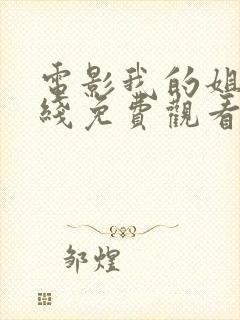 電影我的姐
綫免費觀看
邹煌